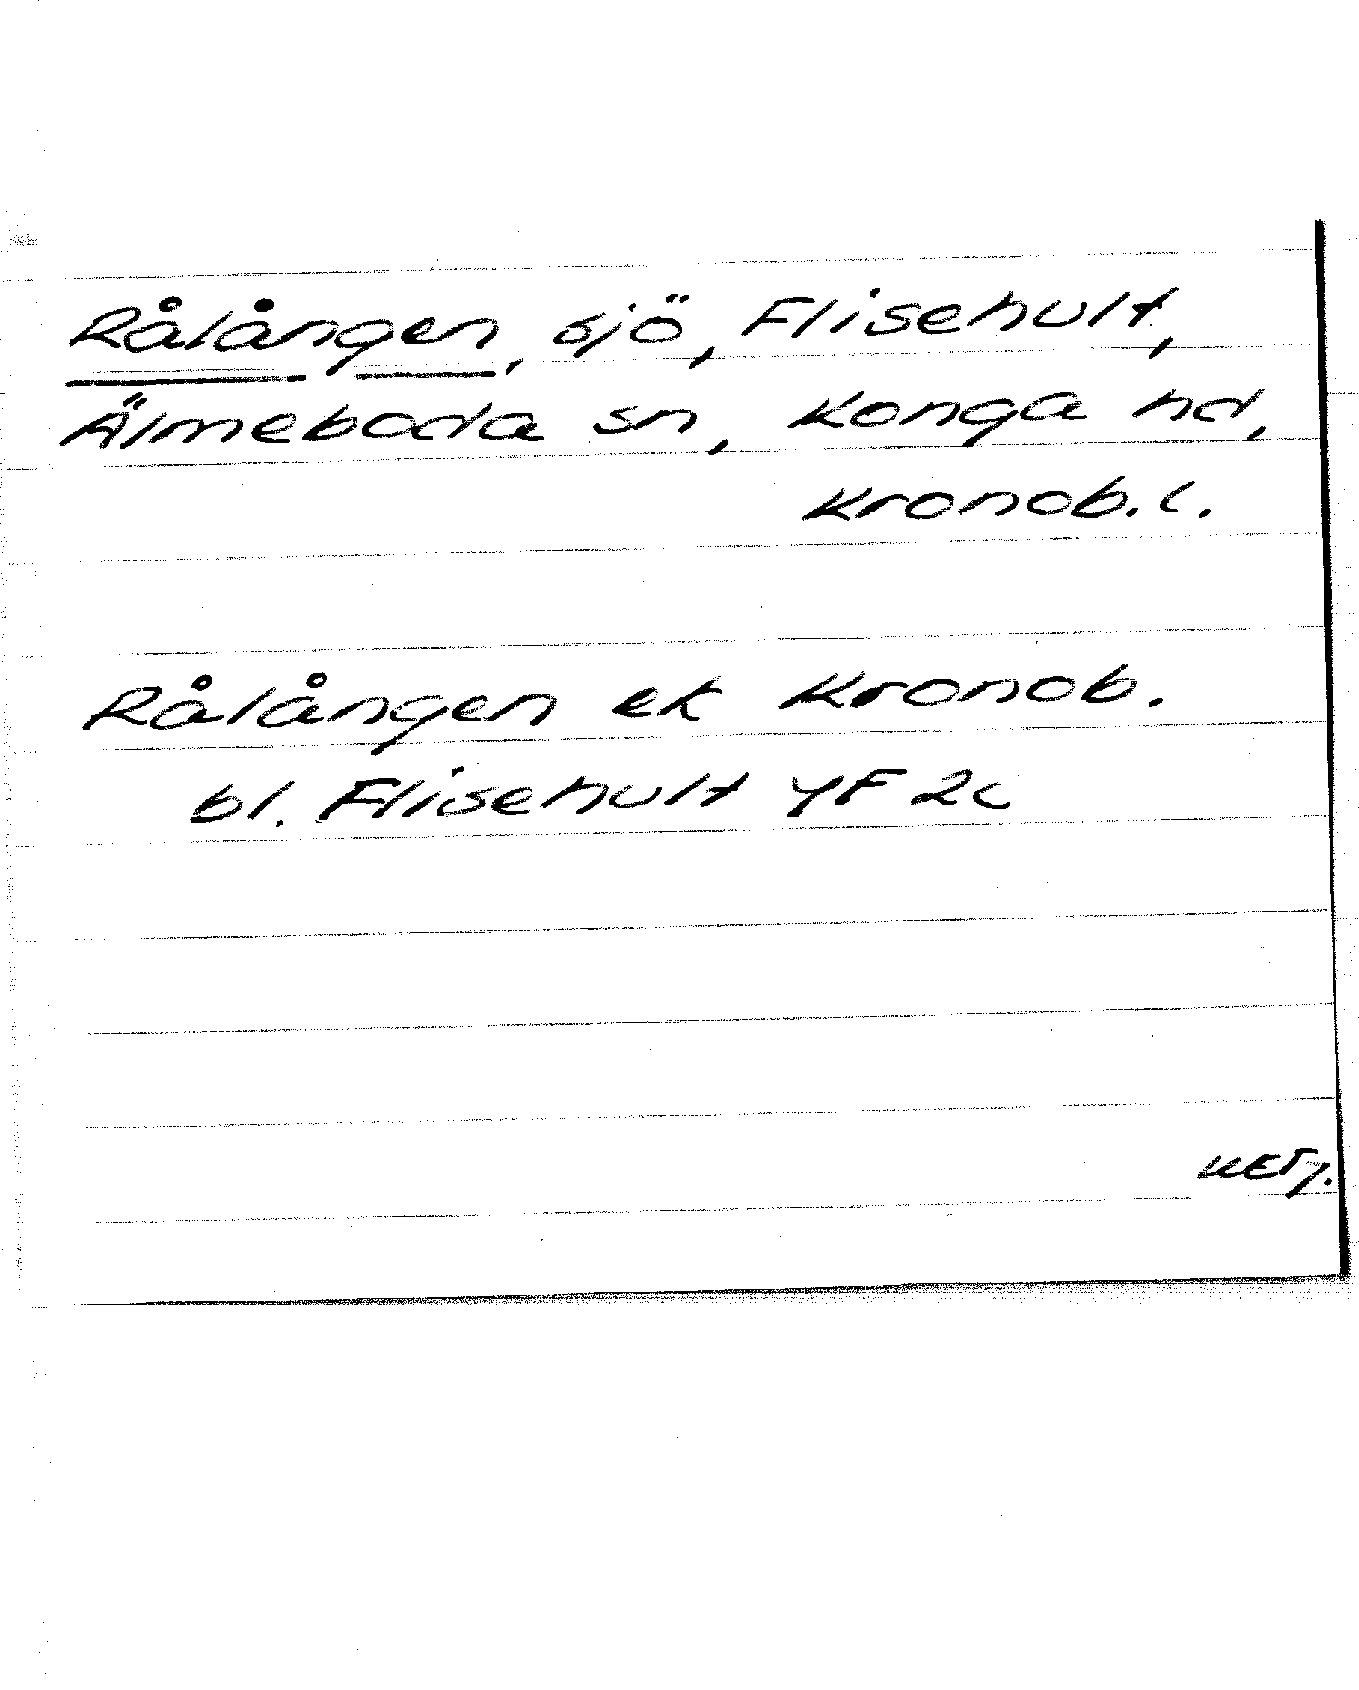 Rålången, sjö, Flisehult,
Älmeboda sn, Konga hd,
Kronob. l.
Rålången ek Kronob.
bl. Flisehult YF 2c